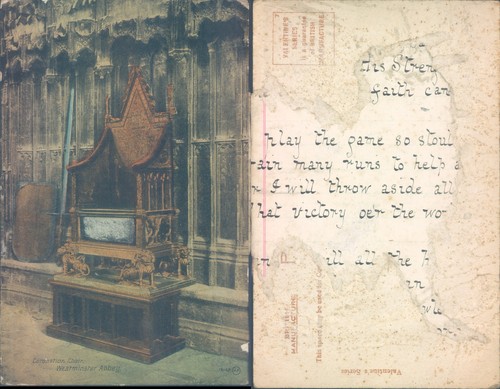 Coronation Chair,
Westminster Abbey.
VALENTINE'S
SERIES
is a guarantee
of BRITISH
MANUFACTURE
His Stren
faith can
play the game so stoul
ain many runs to help a
r I will throw aside all
hat victory oer the wor
ill all the
BRITISH
MANUFACTURE
This space may be used for
Valentine's Series